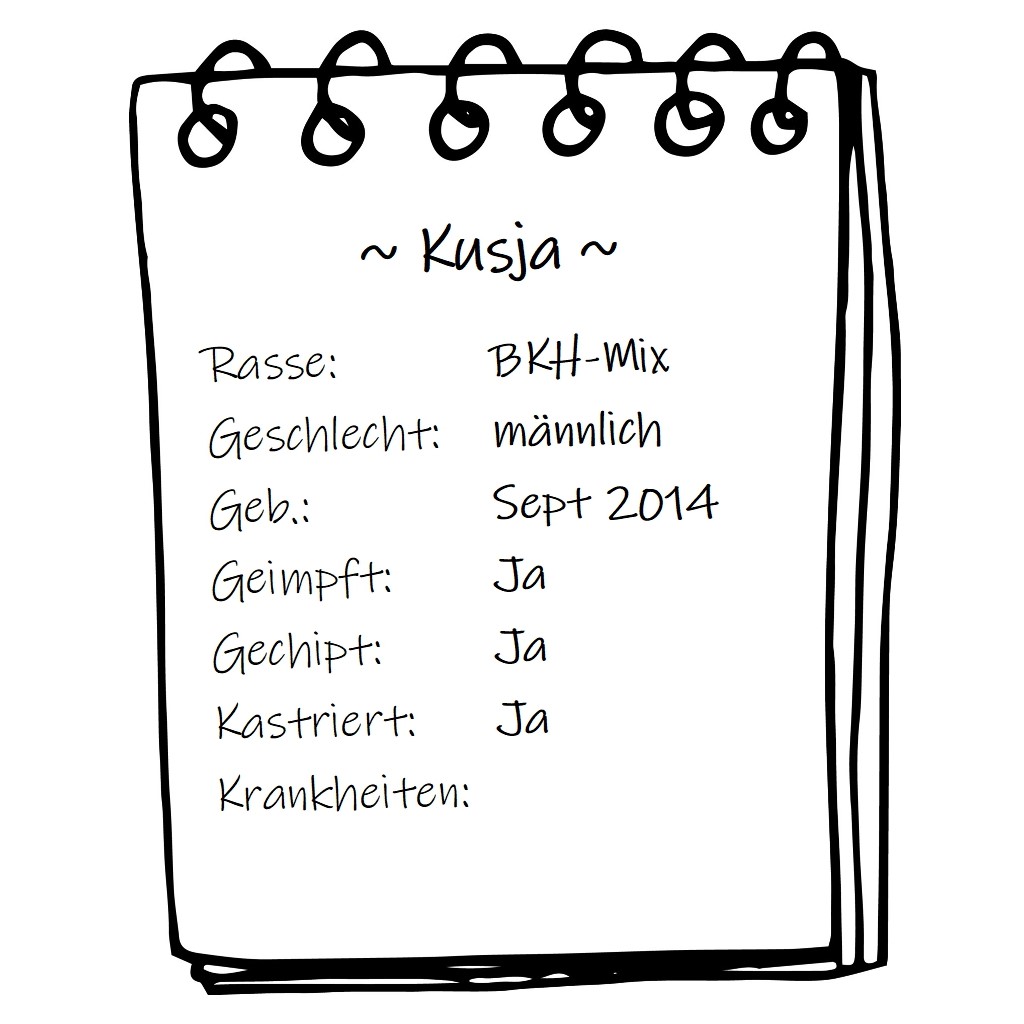 ~ Kusja ~
Rasse: BKH-Mix
Geschlecht: männlich
Geb.: Sept 2014
Geimpft: Ja
Gechipt: Ja
Kastriert: Ja
Krankheiten: